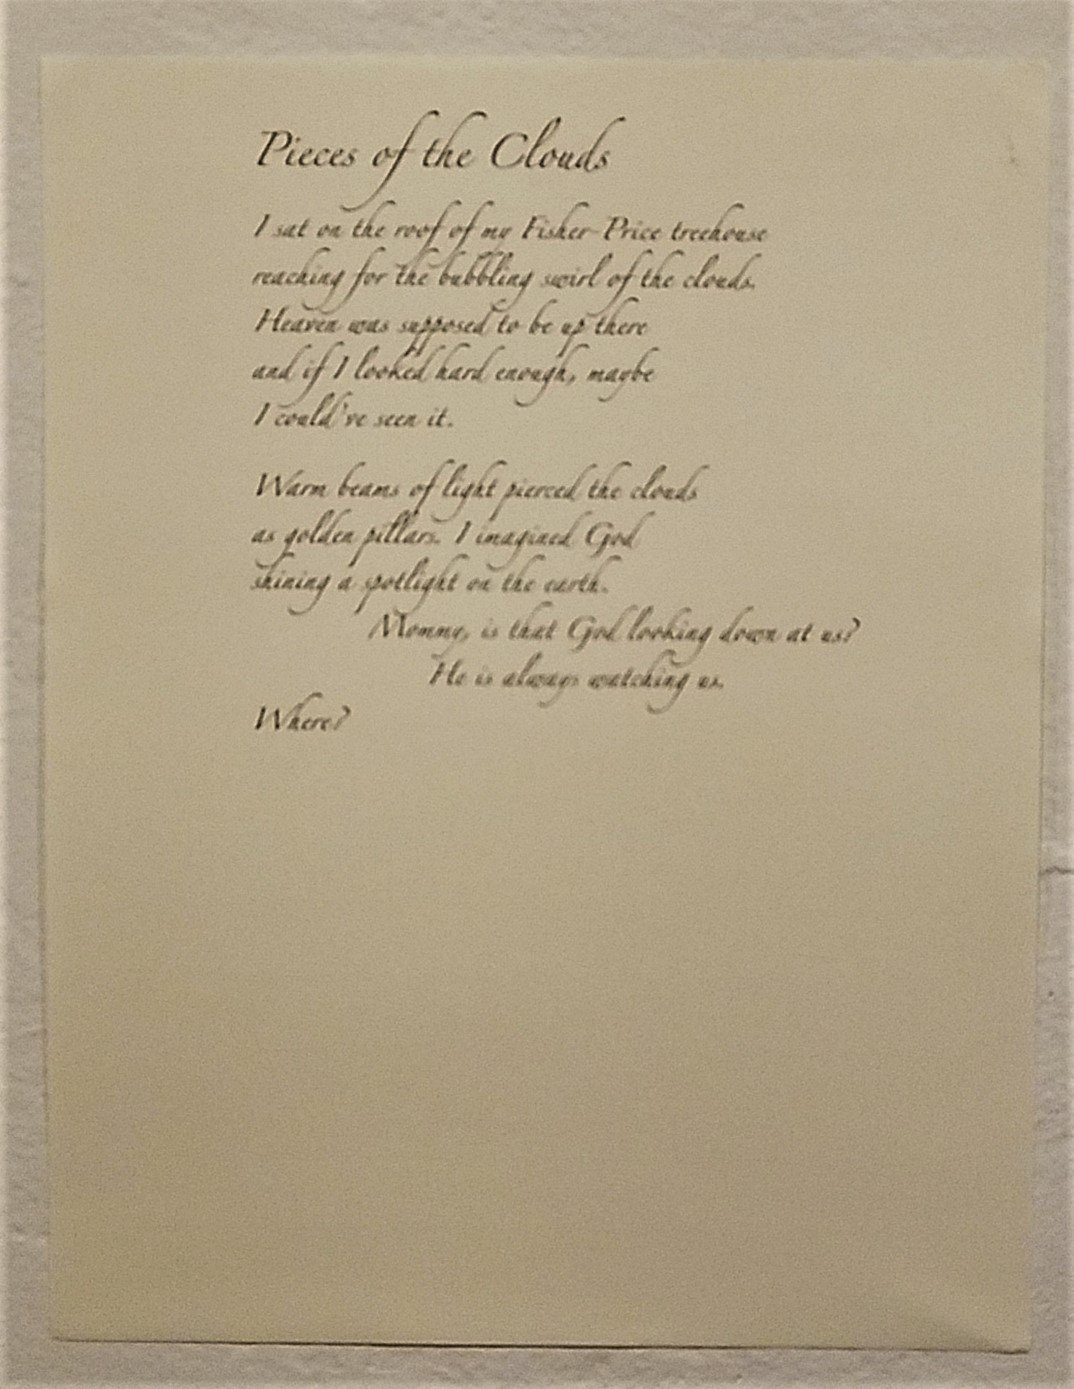 Pieces of the Clouds
I sat on the roof of my Fisher-Price treehouse
reaching for the bubbling swirl of the clouds.
Heaven was supposed to be up there
and if I looked hard enough, maybe
I could've seen it.
Warm beams of light pierced the clouds
as golden pillars. I imagined God
shining a spotlight on the earth.
Mommy, is that God looking down at us?
He is always watching us.
Where?